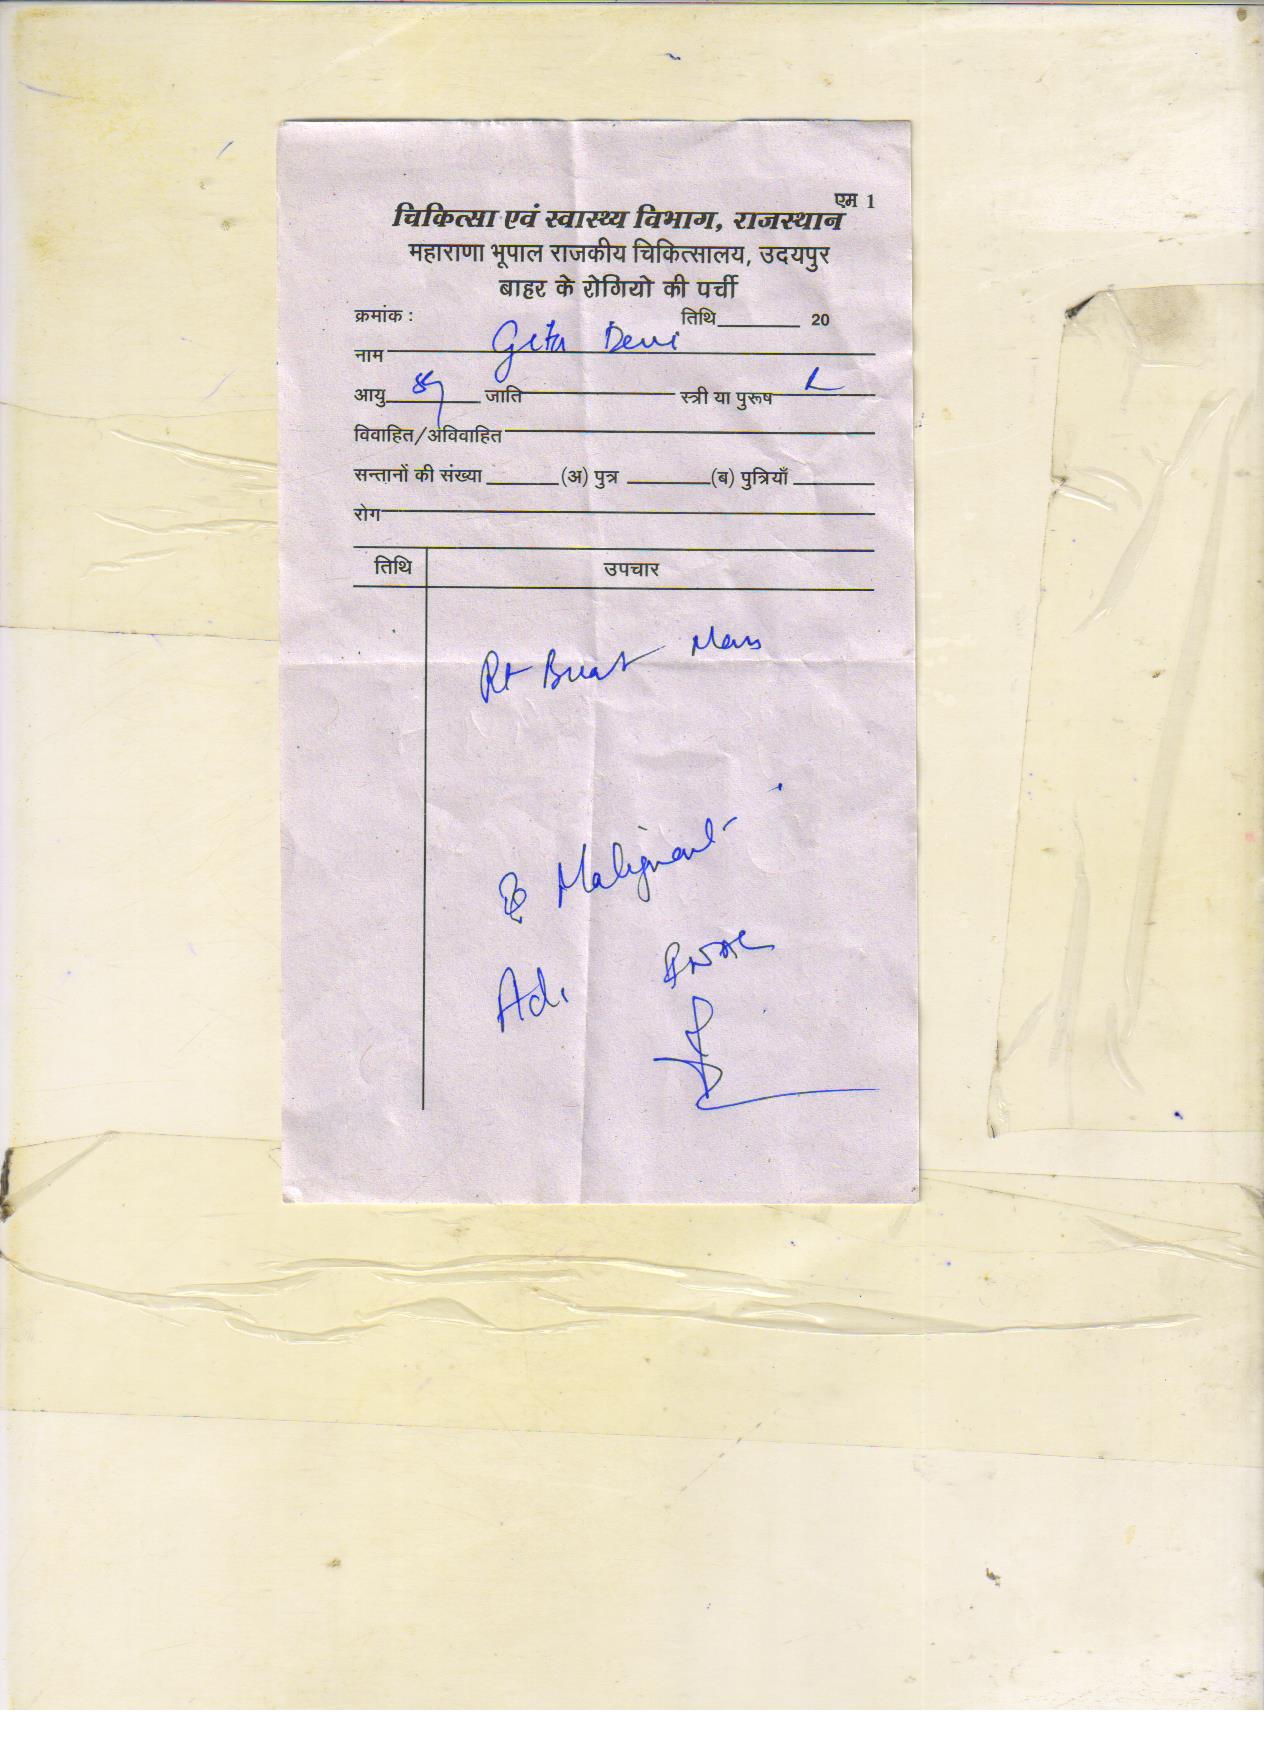 एम 1
चिकित्सा एवं स्वास्थ्य विभाग, राजस्थान
महाराणा भूपाल राजकीय चिकित्सालय, उदयपुर
बाहर के रोगियो की पर्ची
क्रमांक : तिथि 20
नाम Gita Devi
आयु जाति स्त्री या पुरूष
विवाहित/अविवाहित
सन्तानों की संख्या (अ) पुत्र (ब) पुत्रियाँ
रोग
तिथि उपचार
Rt Breast Mass
Malignant
Ad. FNAC